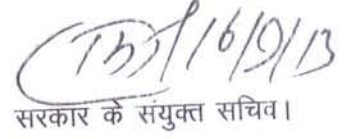 16/9/13
सरकार के संयुक्त सचिव।